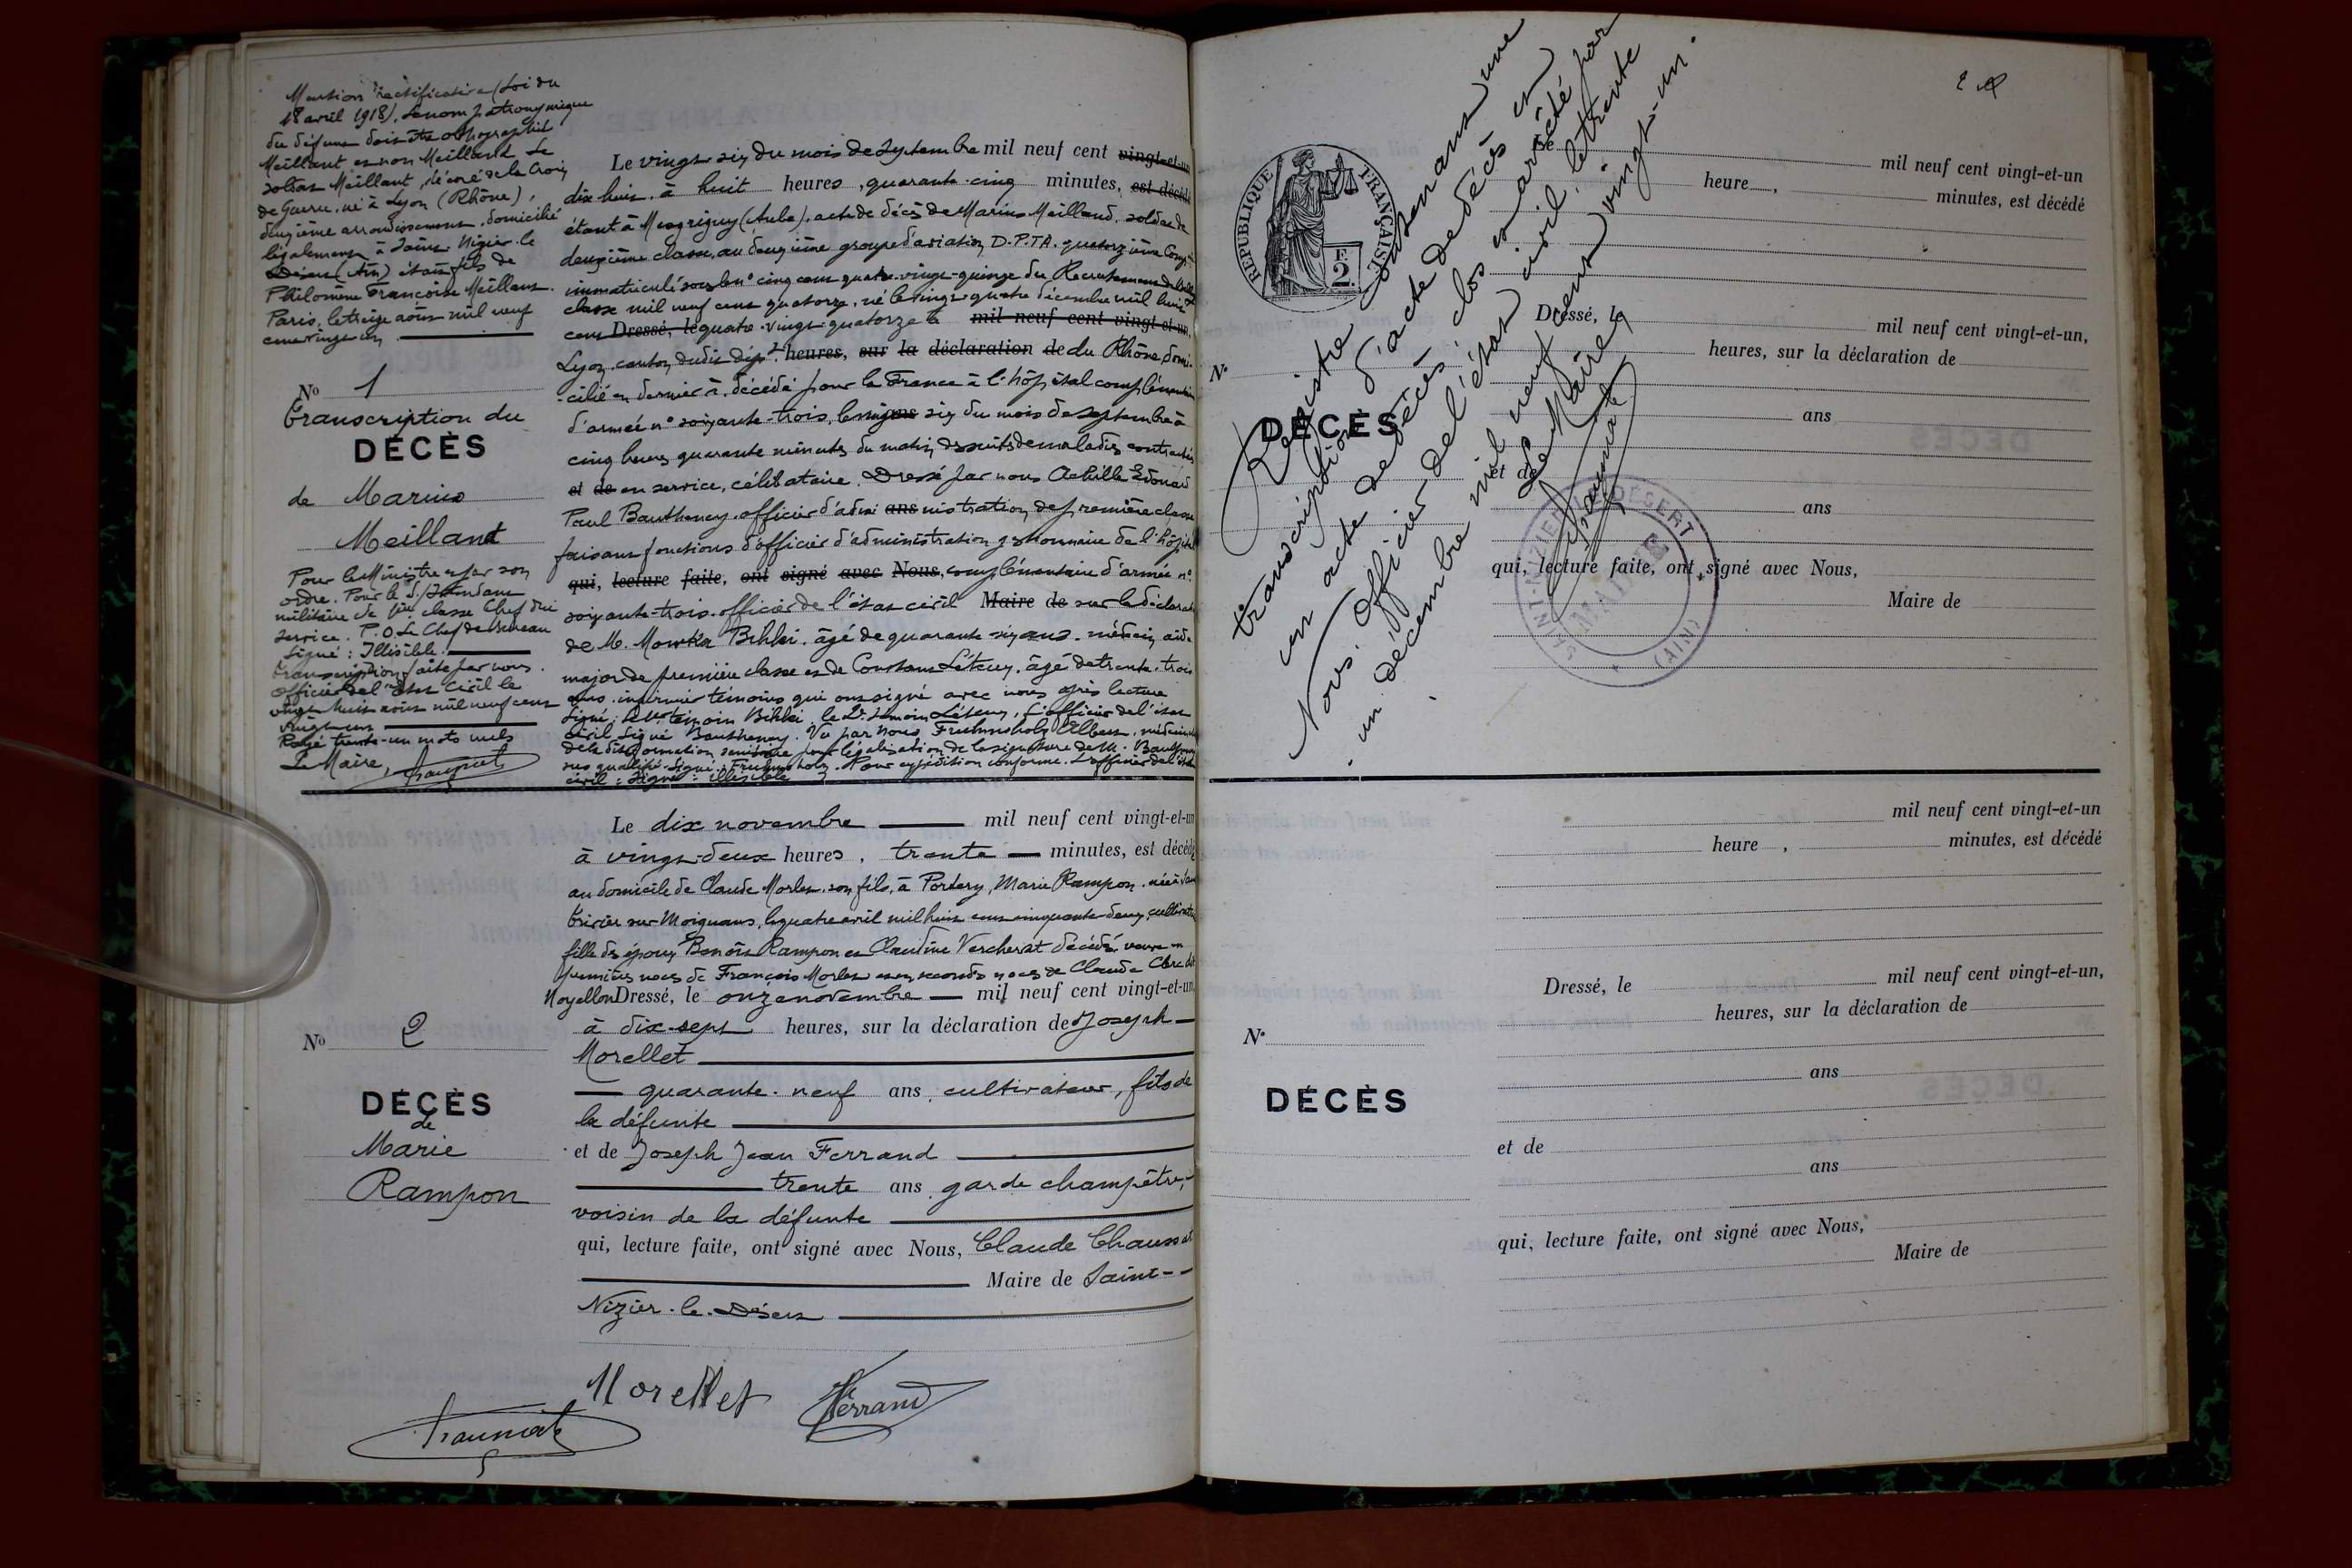 Mention rectificative (Loi du
18 avril 1918). Le nom patronymique
du défunt doit être orthographié
Meillant et non Meilland. Le
soldat Meillant, décoré de la Croix
de Guerre, né à Lyon (Rhône),
deuxième arrondissement, domicilié
légalement à Saint Nizier-le
Désert (Ain) était fils de
Philomène Françoise Meillant.
Paris, le treize août mil neuf
cent vingt un
No 1
Transcription du
DÉCÈS
de Marius
Meillant
Pour le Ministre et par son
ordre. Pour le S/Intendant
militaire de 1ère classe Chef du
service. P.O. Le Chef de Bureau
Signé : Illisible.
Transcription faite par nous.
officier de l'état civil le
vingt huit août mil neuf cent
vingt-un
Rayé trente-un mots nuls
Le Maire,
Le vingt-six du mois de septembre mil neuf cent vingt-et-un
dix huit, à huit heures, quarante-cinq minutes, est décédé
étant à Mesgrigny (Aube). acte de décès de Marius Meilland. soldat de
deuxième classe, au deuxième groupe d'aviation D.P.T.A. quatorzième Comp
immatriculé sous le n° cinq cent quatre-vingt-quinze du Recrutement de
classe mil neuf cent quatorze, né le vingt-quatre décembre mil huit
cent Dressé, le quatre-vingt-quatorze à mil neuf cent vingt-et-un,
Lyon, canton dudit dépt heures, sur la déclaration de du Rhône, domi-
-cilié en dernier à, décédé pour la France à l'hôpital complémentaire
d'armée n° soixante-trois, le vingt ans six du mois de septembre à
cinq heures quarante minutes du matin des suites de maladies contractées
et de en service, célibataire. Dressé par nous Achille Edouard
Paul Bautheney. officier d'admi ans nistration, de première classe
faisant fonctions d'officier d'administration gestionnaire de l'hôpital
qui, lecture faite, ont signé avec Nous, complémentaire d'armée n°
soixante-trois. officier de l'état civil Maire de sur la déclarat
de M. Bihhi. âgé de quarante-six ans. médecin aide
major de première classe et de Constant Léteuy. âgé de trente-trois
ans. infirmier témoins qui ont signé avec nous après lecture
Signé : le 1er témoin Bihhi. le 2e témoin Léteuy, L'officier de l'état
civil Signé Bautheney. Vu par nous Fruhinsholz Albert, médecin
de la dite formation sanitaire pour légalisation de la signature de M. Bautheney
ses qualité. Signé : Fruhinsholz. Pour expédition conforme. L'officier de l'état
civil : Signé : illisible
Le dix novembre mil neuf cent vingt-et-un
à vingt-deux heures, trente minutes, est décédé
au domicile de Claude Morlet, son fils, à Portery, Marie Rampon. née à Saint
Trivier sur Moignans, le quatre avril mil huit cent cinquante-deux, cultivatrice
fille des époux Benoît Rampon et Claudine Vercherat décédés veuve en
premières noces de François Morlet et en secondes noces de Claude Clerc dit
Noyellon Dressé, le onze novembre mil neuf cent vingt-et-un,
à dix-sept heures, sur la déclaration de Joseph
Morellet
quarante-neuf ans, cultivateur, fils de
la défunte
No 2
DÉCÈS
de
Marie
Rampon
et de Joseph Jean Ferrand
trente ans, garde champêtre,
voisin de la défunte
qui, lecture faite, ont signé avec Nous, Claude Chaussat
Maire de Saint-
Nizier-le-Désert
Morellet Ferrand
2
RÉPUBLIQUE FRANÇAISE
F.
2.
Registre contenant une
transcription d'acte de décès et
un acte de décès, clos et arrêté par
Nous, Officier de l'état civil, le trente
un décembre mil neuf cent vingt-un.
Le Maire,
SAINT-NIZIER-LE-DÉSERT
MAIRIE
(AIN)
Le mil neuf cent vingt-et-un
heure, minutes, est décédé
Dressé, le mil neuf cent vingt-et-un,
heures, sur la déclaration de
N°
DÉCÈS
ans
et de
ans
qui, lecture faite, ont signé avec Nous,
Maire de
mil neuf cent vingt-et-un
heure, minutes, est décédé
Dressé, le mil neuf cent vingt-et-un,
heures, sur la déclaration de
N°
ans
DÉCÈS
et de
ans
qui, lecture faite, ont signé avec Nous,
Maire de